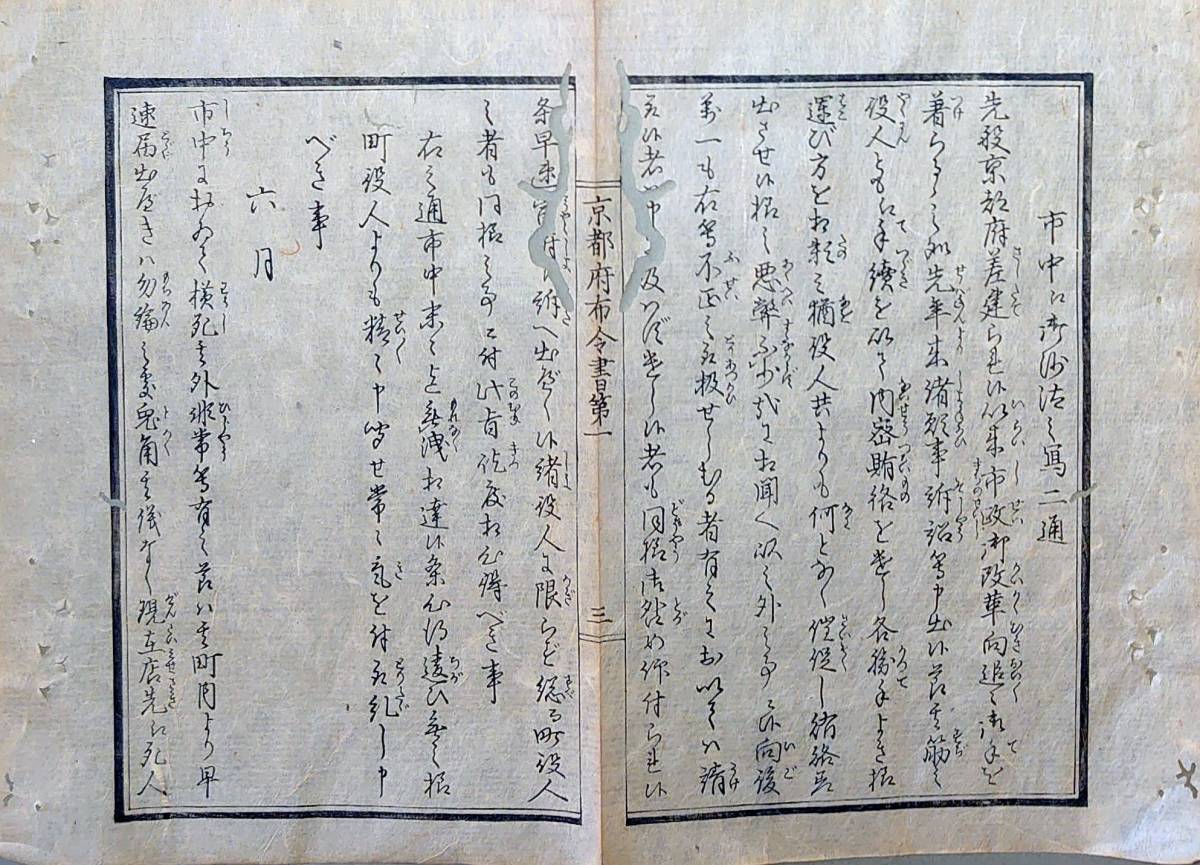 市中江御沙汰之寫二通
先般京都府差建られ候以来市政御改革向追々御手を
着らるゝ処先年来諸願事訴訟等申出候節其筋之
役人とも江手續を以て内密賄賂を遣し各勝手よき様
運び方を相頼ミ猶役人共よりも何となく催促し賄賂為
出させ候様之悪弊不少哉ニ相聞へ以之外之事ニ候向後
萬一も右等不正之取扱せしむる者有之ニおいてハ請
取候者ハ申ニ及バず遣し候者も同様御咎め仰付られ候
条早速訴へ出べく候諸役人に限らど総而町役人
之者も同様之事ニ付此旨屹度相心得べき事
右之通市中末々迄無洩相達候条心得違ひ無之様
町役人よりも精々申聞せ常々気を付取糺し申
べき事
六月
市中におゐて横死其外非常等有之節ハ其町内より早
速届出べきハ勿論之處兎角其儀なく現在店先江死人
京都府布令書第一
三